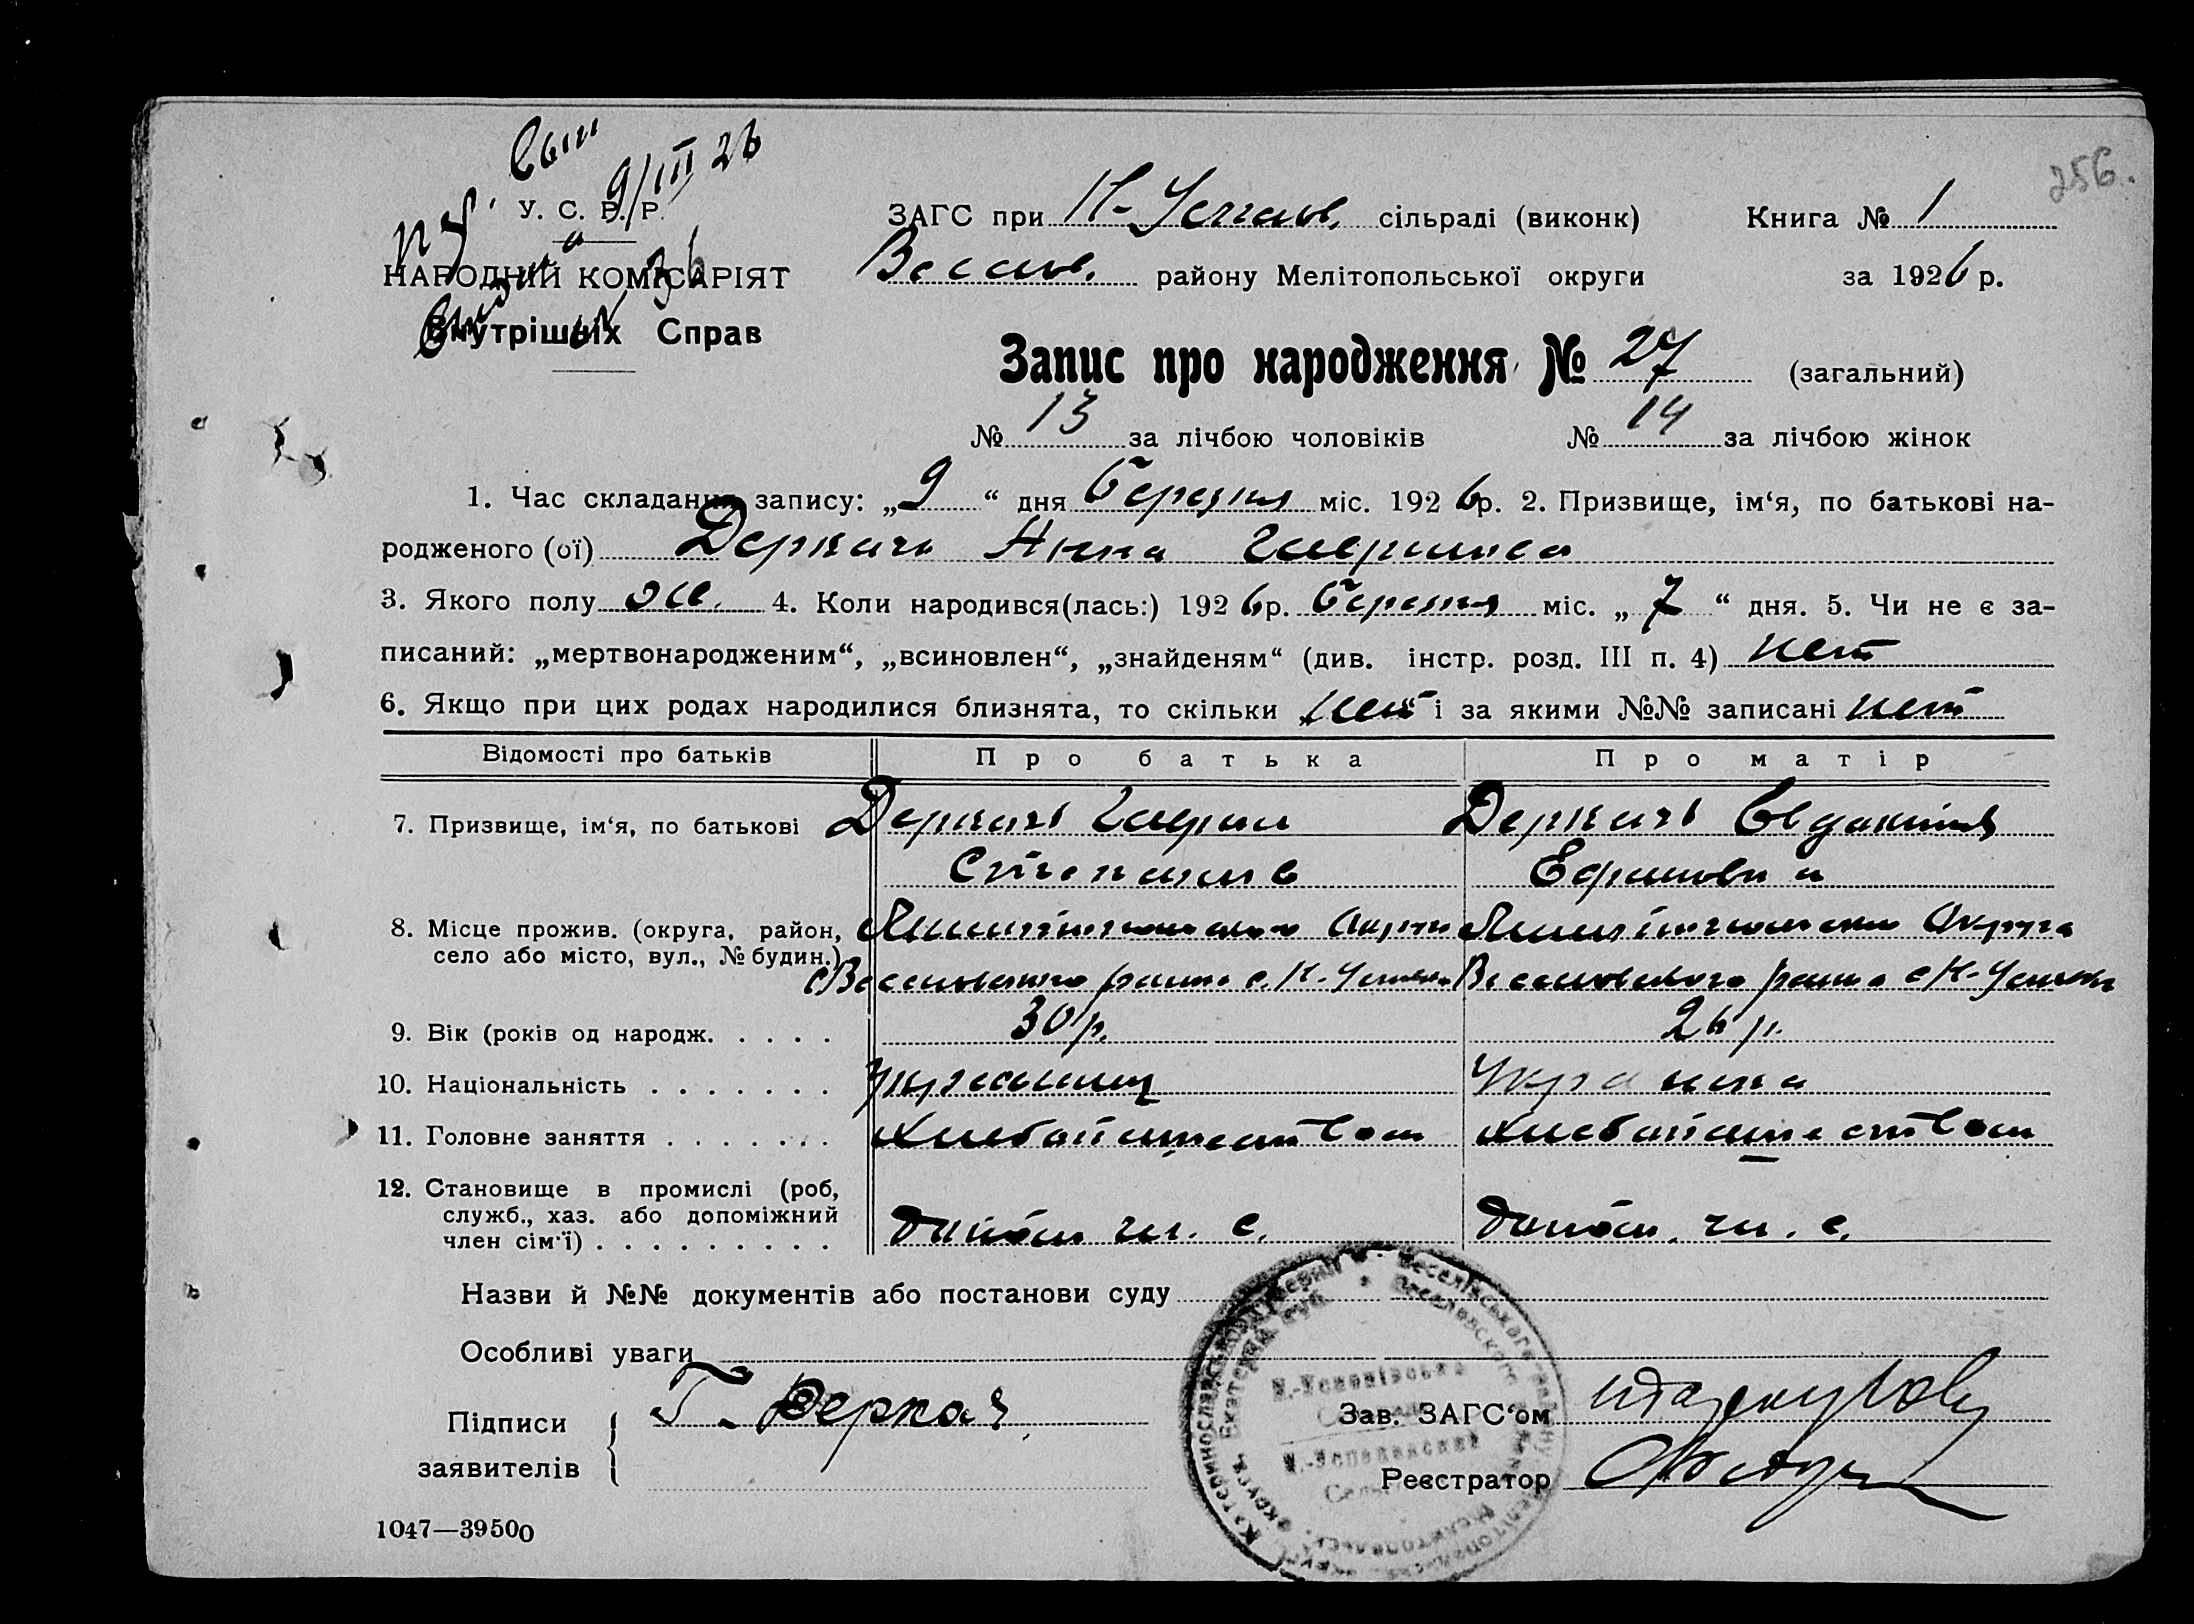 256.
9/III 26
У. С. Р. Р.
НАРОДНИЙ КОМІСАРІЯТ
Внутрішніх Справ
ЗАГС при Н-Успенов. сільраді (виконк) Книга № 1
Весслов. району Мелітопольської округи за 1926 р.
Запис про народження № 27 (загальний)
№ 13 за лічбою чоловіків № 14 за лічбою жінок
1. Час складання запису: „9“ дня березня міс. 1926 р. 2. Призвище, ім‘я, по батькові на-
родженого (ої) Деркачь Анна Гаврилова
3. Якого полу жс. 4. Коли народився(лась:) 1926 р. березня міс. „7“ дня. 5. Чи не є за-
писаний: „мертвонародженим“, „всиновлен“, „знайденям“ (див. інстр. розд. III п. 4) нет
6. Якщо при цих родах народилися близнята, то скільки нет і за якими №№ записані нет
Відомості про батьків Про батька Про матір
7. Призвище, ім‘я, по батькові Деркачь Гаврил Деркачь Евдокия
Ефимовна
8. Місце прожив. (округа, район, село або місто, вул., № будин.)
9. Вік (років од народж. . . . . 30 р. 26 р.
10. Національність . . . . . . . Украинец Украинка
11. Головне заняття . . . . . . . Хлебопашеством Хлебопашеством
12. Становище в промислі (роб, служб., хаз. або допоміжний член сім‘ї) . . . . . . . . . допом. чл. с. допом. чл. с.
Назви й №№ документів або постанови суду
Особливі уваги
Підписи заявителів Г. Деркач
Зав. ЗАГС‘ом
Реєстратор
1047—39500